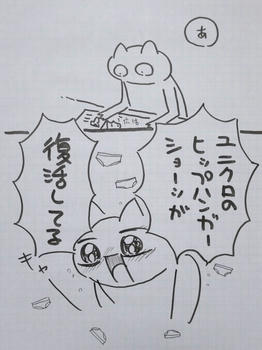 あ
ユニクロの
ヒップハンガー
ショーツが
復活してる
キャ